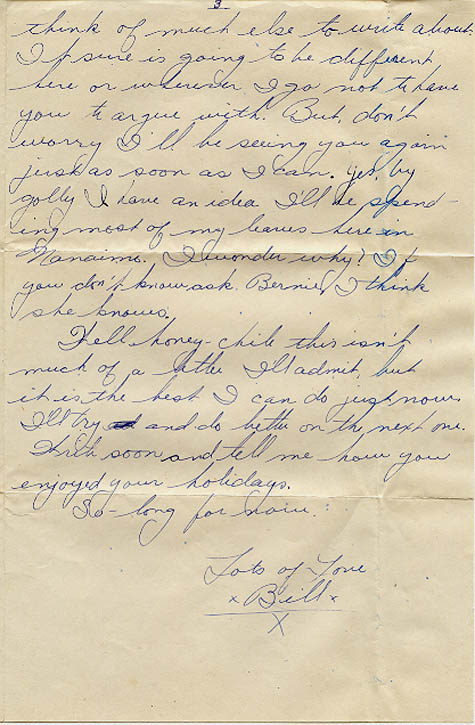 3
think of much else to write about.
It sure is going to be different
here or wherever I go not to have
you to argue with. But, don't
worry I'll be seeing you again
just as soon as I can. Yes, by
golly I have an idea I'll be spend-
ing most of my leaves here in
Nanaimo. I wonder why? If
you don't know ask Bernie, I think
she knows.
Well honey-chile this isn't
much of a letter I'll admit, but
it is the best I can do just now.
I'll try and do better on the next one.
Write soon and tell me how you
enjoyed your holidays.
So-long for now.
Lots of Love
x Bill x
X